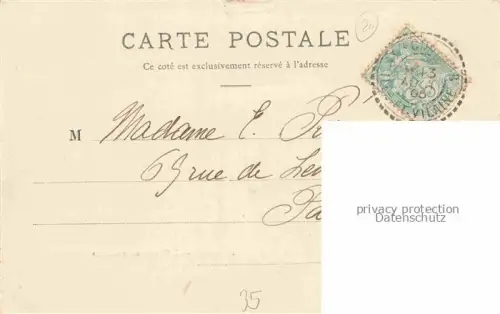 CARTE POSTALE
Ce côté est exclusivement réservé à l'adresse
M Madame E.
69 rue de
privacy protection
Datenschutz
VILAINE
35